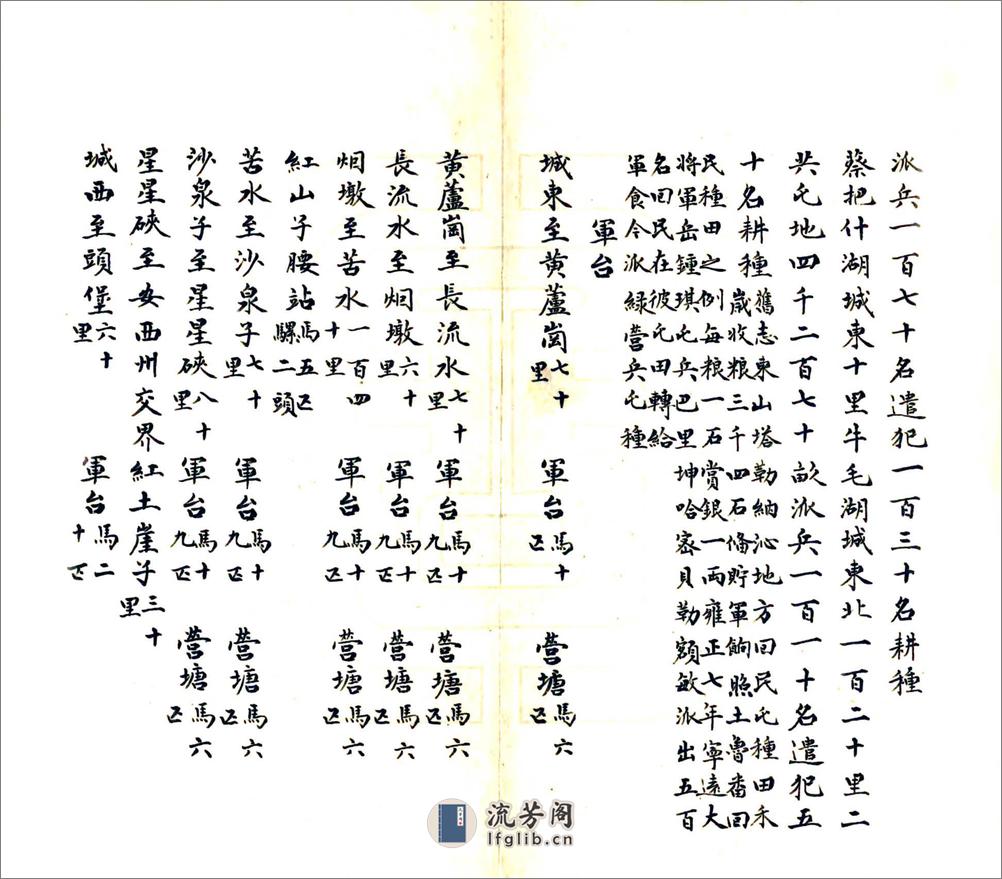 派兵一百七十名遣犯一百三十名耕種
蔡把什湖城東十里牛毛湖城東北一百二十里二
共屯地四千二百七十畝派兵一百一十名遣犯五
十名耕種舊志東山塔勒納沁地方回民屯種田禾
歲收粮三千四石俻貯軍餉照土魯番回
民種田之例每粮一石賞銀一兩雍正七年寧遠大
將軍岳鍾琪屯兵巴里坤哈宻貝勒額敏派出五百
名回民在彼屯田轉給
軍食今派綠營兵屯種
軍台
城東至黄蘆崗七十里 軍台馬十匹 營塘馬六匹
黄蘆崗至長流水七十里 軍台馬十九匹 營塘馬六匹
長流水至烟墩六十里 軍台馬十九匹 營塘馬六匹
烟墩至苦水一百四十里 軍台馬十九匹 營塘馬六匹
紅山子腰站馬五匹騾二頭
苦水至沙泉子七十里 軍台馬十九匹 營塘馬六匹
沙泉子至星星硤八十里 軍台馬十九匹 營塘馬六匹
星星硤至安西州交界紅土崖子三十里
城西至頭堡六十里 軍台馬二十匹
流芳阁
lfglib.cn